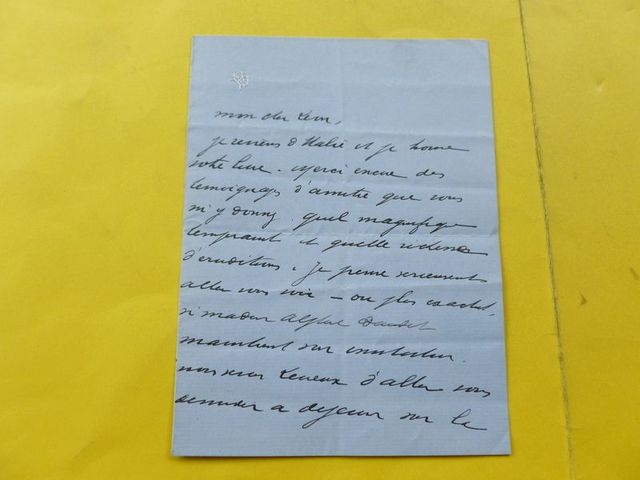 mon cher Leon,
je reviens d'Italie et je trouve
votre livre. Merci encore des
temoignages d'amitié que vous
m'y donnez. quel magnifique
temperament et quelle richesse
d'erudition. Je pense serieusement
aller vous voir – ou plus exactet.
si madame Alphonse Daudet
maintient son invitation.
nous serons heureux d'aller vous
demander a dejeuner sur la